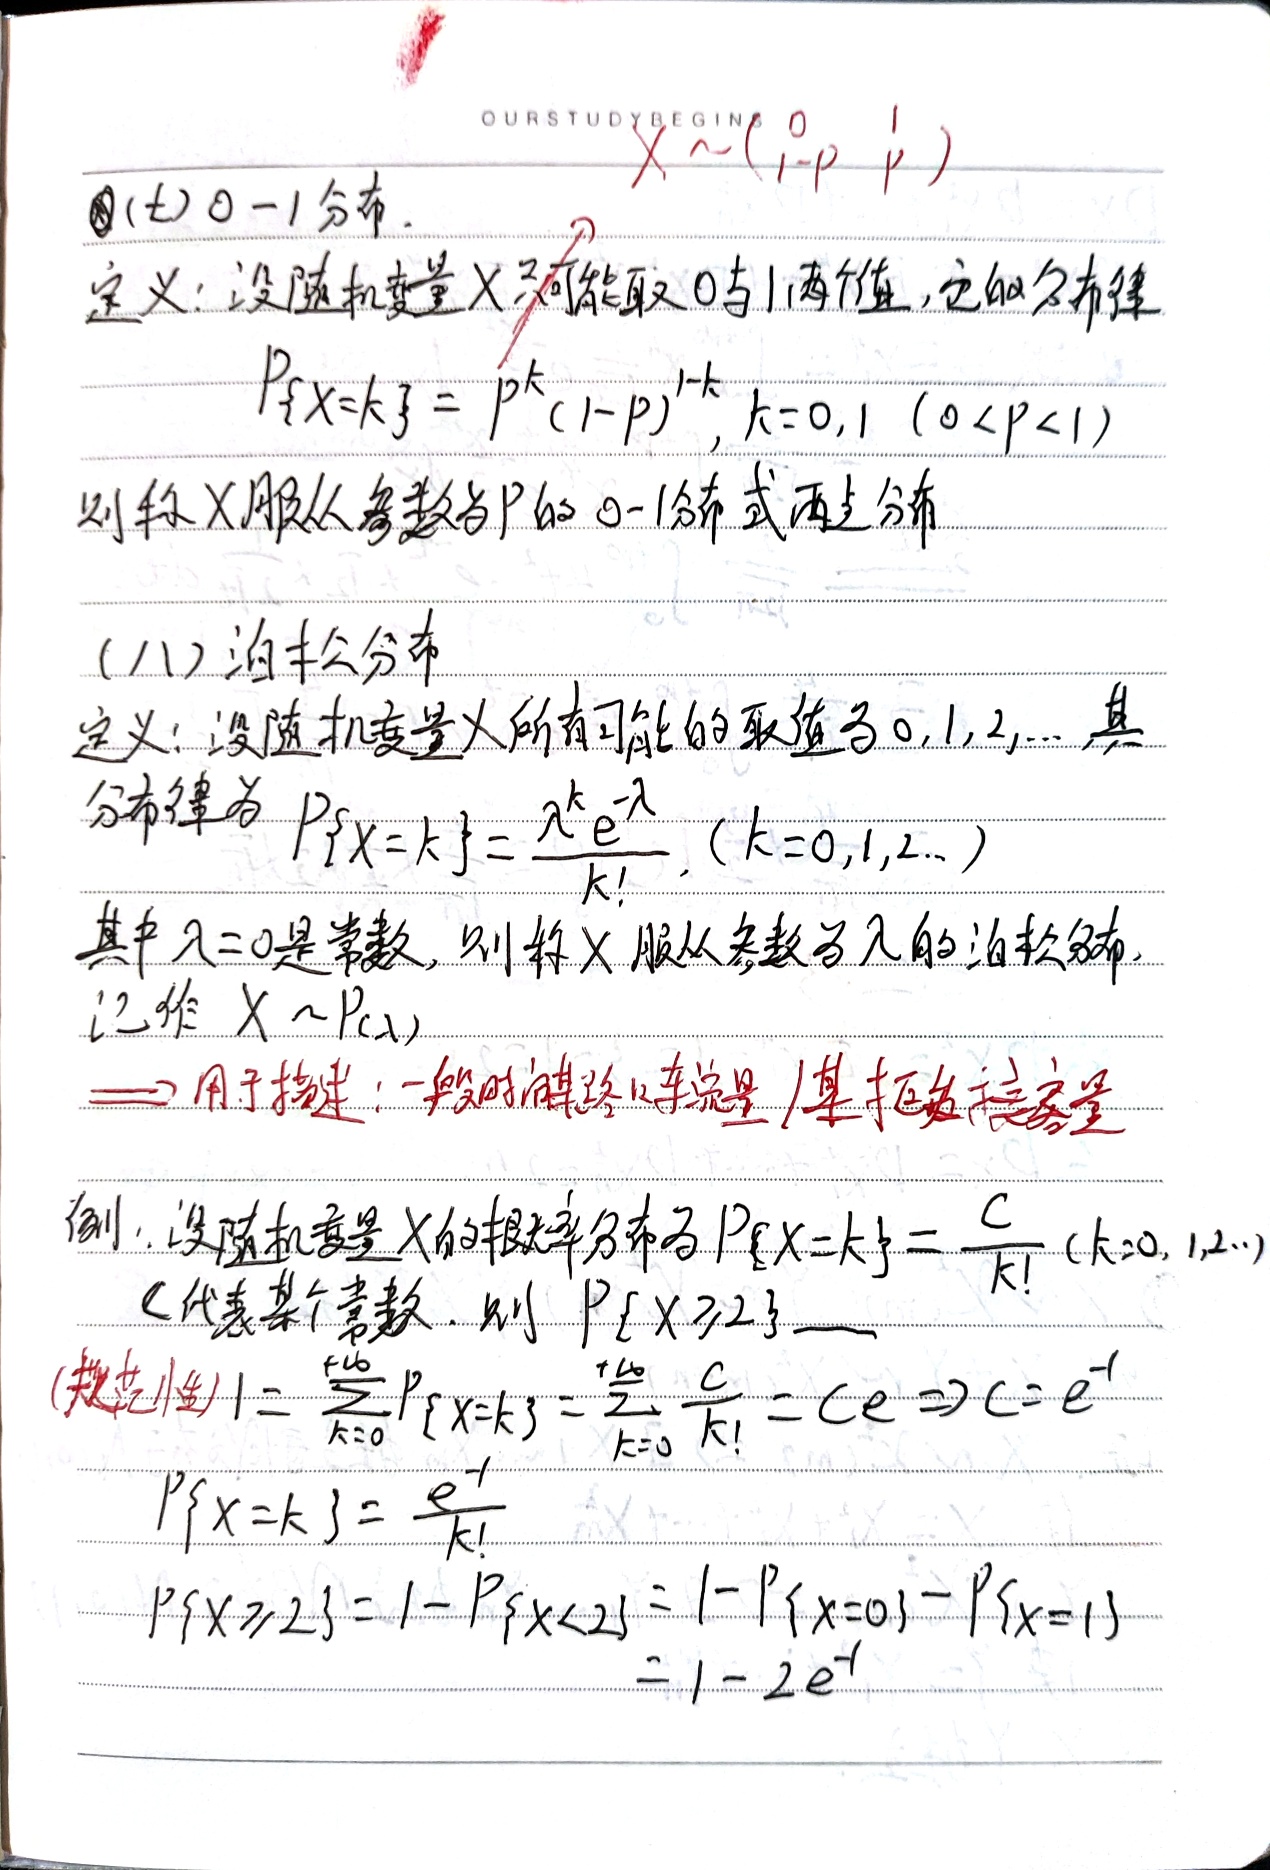 OURSTUDYBEGINS
X ~ ( 0 1
1-p p )
(七) 0-1分布.
定义: 设随机变量X只可能取0与1两个值, 它的分布律
P{X=k} = p^k (1-p)^{1-k}, k=0,1 (0<p<1)
则称X服从参数为p的0-1分布或两点分布
(八) 泊松分布
定义: 设随机变量X所有可能的取值为0,1,2,… 其
分布律为 P{X=k} = \frac{λ^k e^{-λ}}{k!}, (k=0,1,2…)
其中λ=0是常数, 则称X服从参数为λ的泊松分布,
记作 X~P(λ)
⟹ 用于描述: 一段时间某路口车流量/某抠
例: 设随机变量X的概率分布为P{X=k} = \frac{C}{k!} (k=0,1,2..)
C代表某个常数. 则 P{X≥2} ___
(规范性) 1 = \sum_{k=0}^{+∞} P{X=k} = \sum_{k=0}^{+∞} \frac{C}{k!} = Ce ⇒ C = e^{-1}
P{X=k} = \frac{e^{-1}}{k!}
P{X≥2} = 1-P{X<2} = 1-P{X=0}-P{X=1}
= 1-2e^{-1}